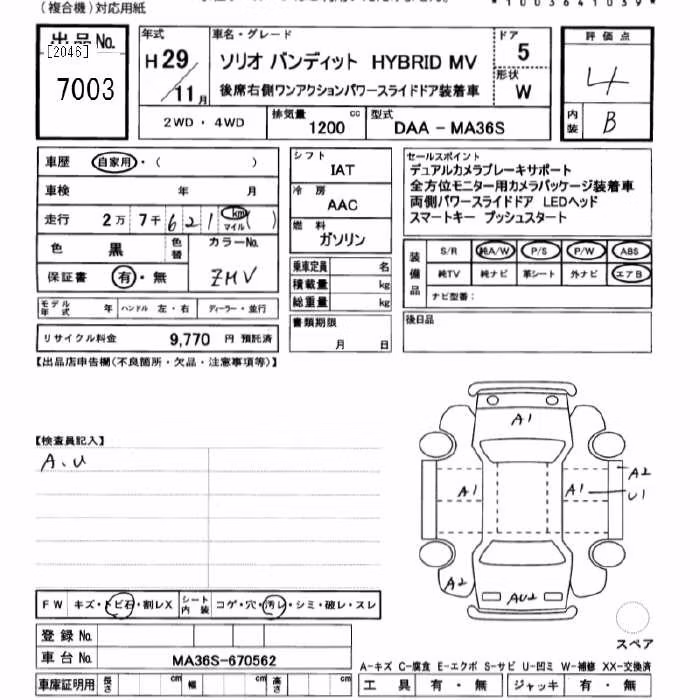 (複合機)対応用紙
*1003641039*
出品No.
[2046]
7003
年式
H29
11月
車名・グレード
ソリオ バンディット HYBRID MV
後席右側ワンアクションパワースライドドア装着車
ドア
5
形状
W
2WD・4WD
排気量
1200 cc
型式
DAA－MA36S
評価点
4
内装
B
車歴 自家用・( )
車検 年 月
走行 2万 7千 621 km マイル ( )
色 黒 色替
カラーNo.
ZMV
保証書 有・無
モデル年式 年 ハンドル 左・右 ディーラー・並行
リサイクル料金 9,770 円 預託済
シフト
IAT
冷房
AAC
燃料
ガソリン
乗車定員 名
積載量 kg
総重量 kg
書類期限
月 日
セールスポイント
デュアルカメラブレーキサポート
全方位モニター用カメラパッケージ装着車
両側パワースライドドア LEDヘッド
スマートキー プッシュスタート
装備品
S/R 純A/W P/S P/W ABS
純TV 純ナビ 革シート 外ナビ エアB
ナビ型番:
後日品
【出品店申告欄(不良箇所・欠品・注意事項等)】
【検査員記入】
A.U
A1
A1
A1
A2
U1
A2
AU2
スペア
FW キズ・トビ石・割レX シート内装 コゲ・穴・汚レ・シミ・破レ・スレ
登録No.
車台No. MA36S-670562
車庫証明用 長さ cm 幅 cm 高さ cm
A-キズ C-腐食 E-エクボ S-サビ U-凹ミ W-補修 XX-交換済
工具 有・無 ジャッキ 有・無